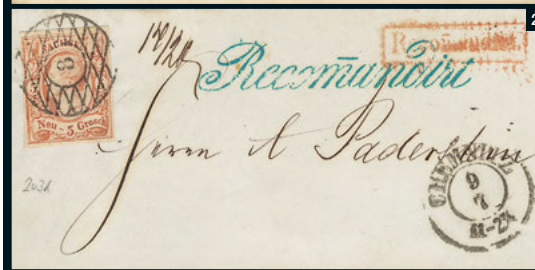 2
SACHSEN
8
Neu-5 Grosch
Recomandirt
Recomandirt
Herrn A Paderstein
CHEMNITZ
9
7
2031